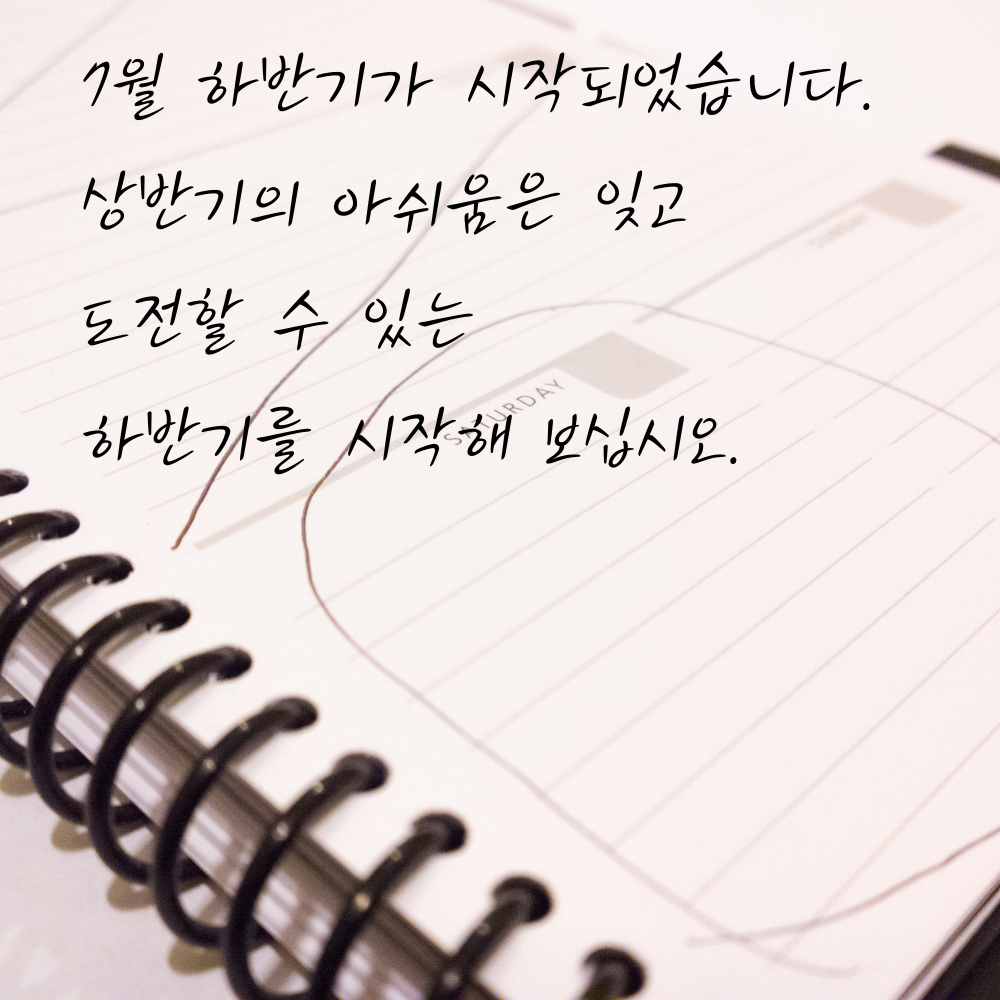 7월 하반기가 시작되었습니다.
상반기의 아쉬움은 잊고
도전할 수 있는
하반기를 시작해 보십시오.
SATURDAY